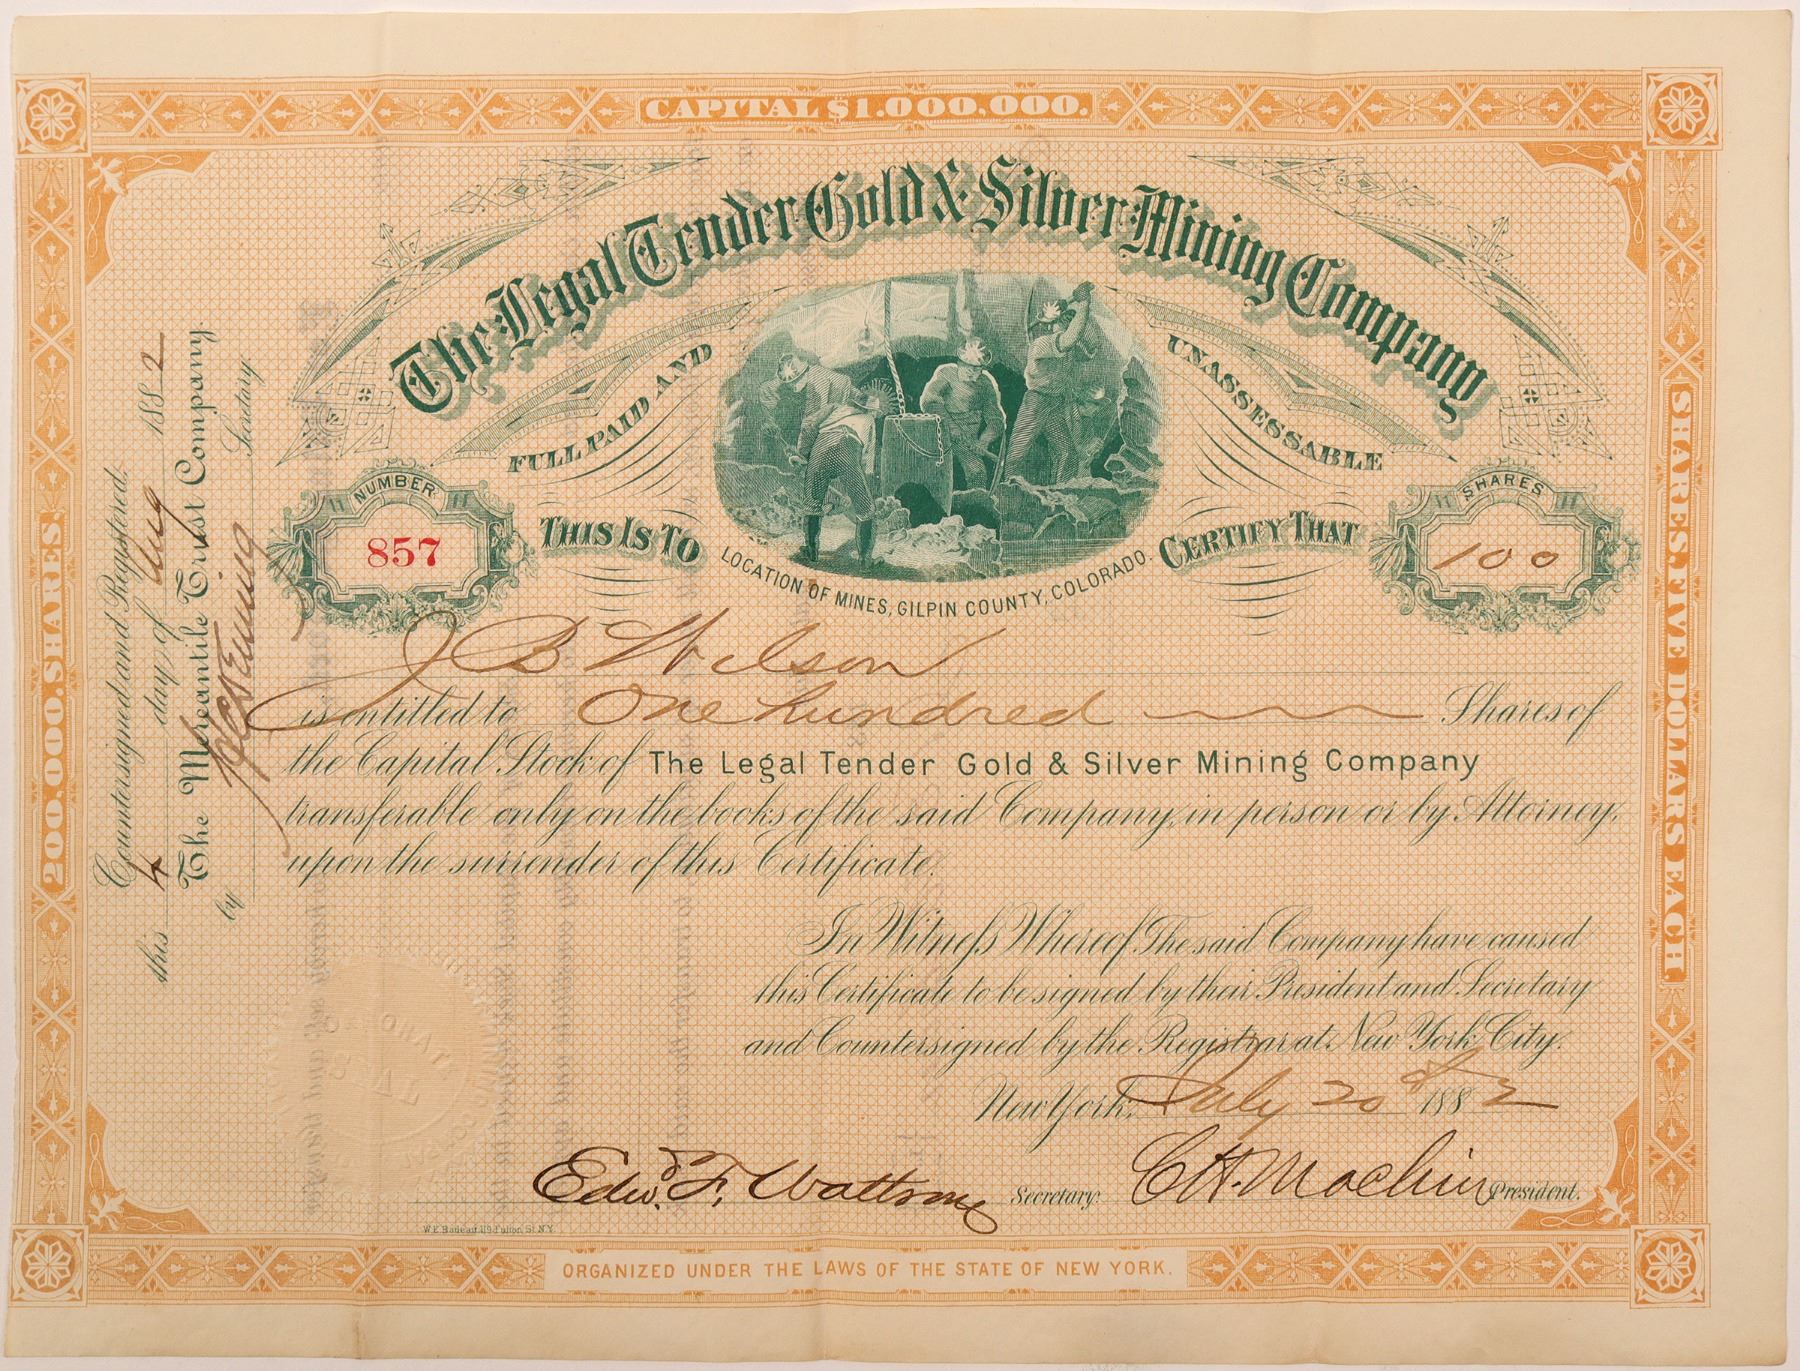 CAPITAL $1.000,000.
The Legal Tender Gold & Silver Mining Company
FULL PAID AND UNASSESSABLE
NUMBER
857
SHARES
100
THIS IS TO CERTIFY THAT
LOCATION OF MINES, GILPIN COUNTY, COLORADO.
J B Wilson
is entitled to One hundred Shares of
the Capital Stock of The Legal Tender Gold & Silver Mining Company
transferable only on the books of the said Company, in person or by Attorney,
upon the surrender of this Certificate.
In Witness Whereof, The said Company have caused
this Certificate to be signed by their President and Secretary
and Countersigned by the Registrar at New York City.
New York, July 20th 1882
Edw. F. Secretary. President.
W.E. Badeau, 119 Fulton St. N.Y.
ORGANIZED UNDER THE LAWS OF THE STATE OF NEW YORK.
200.000. SHARES
SHARES FIVE DOLLARS EACH.
Countersigned and Registered.
this 4 day of Aug 1882
The Mercantile Trust Company.
by Secretary
SEAL